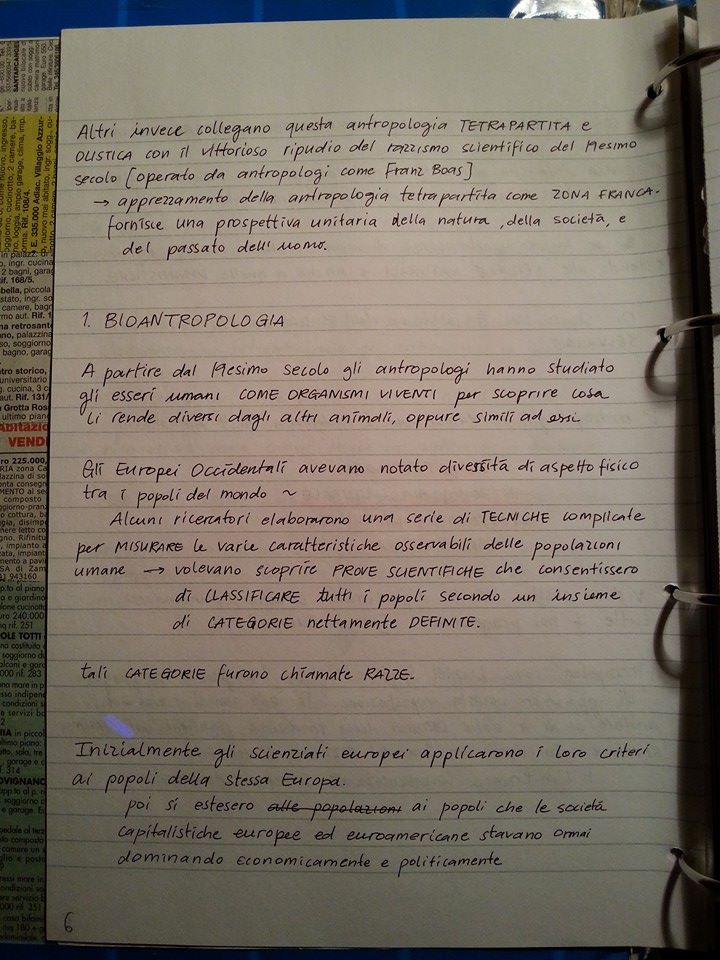 Altri invece collegano questa antropologia TETRAPARTITA e
OLISTICA con il vittorioso ripudio del razzismo scientifico del 19esimo
secolo [operato da antropologi come Franz Boas]
→ apprezzamento della antropologia tetrapartita come ZONA FRANCA -
fornisce una prospettiva unitaria della natura, della società, e
del passato dell'uomo.
1. BIOANTROPOLOGIA
A partire dal 19esimo secolo gli antropologi hanno studiato
gli esseri umani COME ORGANISMI VIVENTI per scoprire cosa
li rende diversi dagli altri animali, oppure simili ad essi
Gli Europei Occidentali avevano notato diversità di aspetto fisico
tra i popoli del mondo ~
Alcuni ricercatori elaborarono una serie di TECNICHE complicate
per MISURARE le varie caratteristiche osservabili delle popolazioni
umane → volevano scoprire PROVE SCIENTIFICHE che consentissero
di CLASSIFICARE tutti i popoli secondo un insieme
di CATEGORIE nettamente DEFINITE.
tali CATEGORIE furono chiamate RAZZE.
Inizialmente gli scienziati europei applicarono i loro criteri
ai popoli della stessa Europa.
poi si estesero alle popolazioni ai popoli che le società
capitalistiche europee ed euroamericane stavano ormai
dominando economicamente e politicamente
6